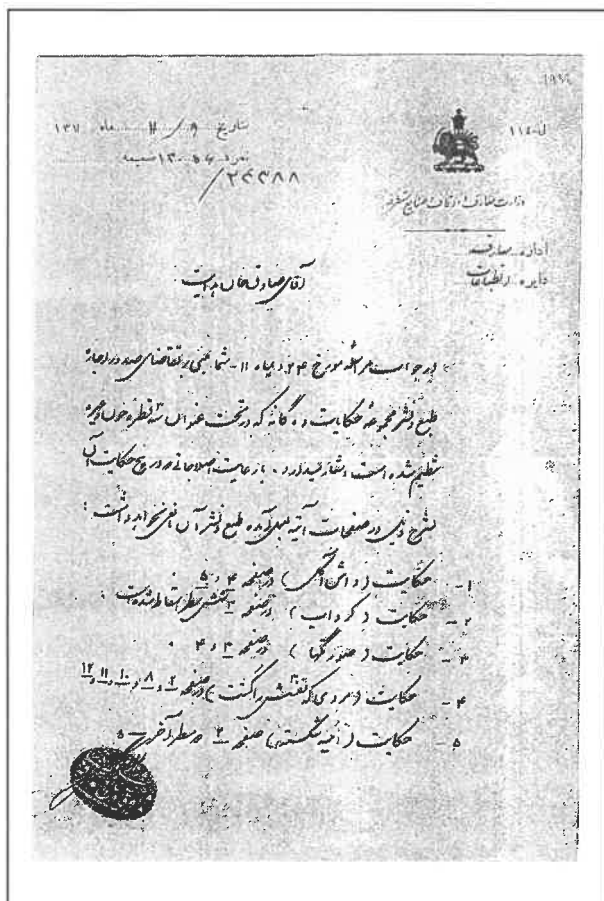 ل-۱۱۴
وزارت معارف و اوقاف و صنایع مستظرفه
اداره معارف
دایره انطباعات
تاریخ ۹ / ۱۱ ماه ۱۳۷
نمره
ضمیمه
/ ۲۴۳۸۸
آقای صادق خان هدایت
در جواب مراسله مورخ ۲۴ دیماه ۱۱- شما مبنی بر تقاضای صدور اجازه
طبع و نشر مجموعه حکایات ده گانه که در تحت عنوان سه قطره خون و غیره
تنظیم شده است اشعار میدارد. با رعایت اصلاحاتی که در پنج حکایت آن
بشرح ذیل در صفحات آتیه بعمل آمده طبع و نشر آن مانعی نخواهد داشت:
۱- حکایت (داش آکل) در صفحه ۴ و ۵
۲- حکایت (گرداب) در صفحه ۳ شش سطر اسقاط شده است
۳- حکایت (صورتکها) در صفحه ۳ و ۴
۴- حکایت (مردی که نفسش را کشت) در صفحه ۶ و ۸ و ۱۰ و ۱۱ و ۱۲
۵- حکایت (آینه شکسته) صفحه ۴ سطر آخر